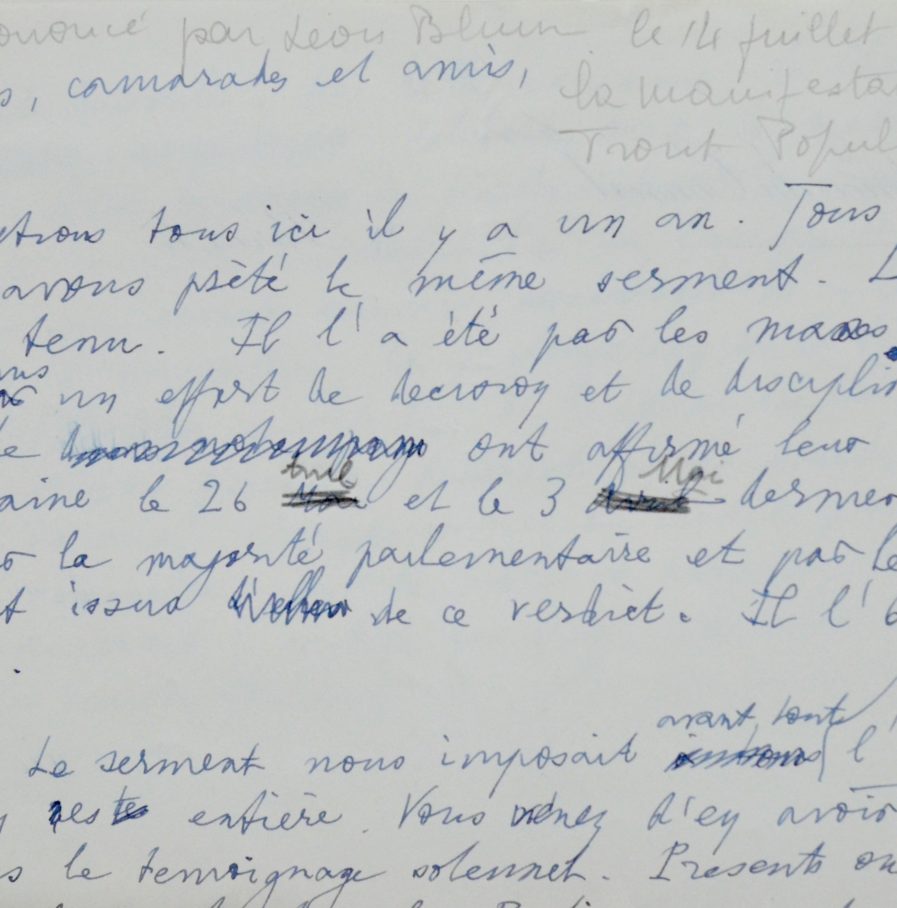 ononcé par Leon Blum le 14 juillet
s, camarades et amis,
la manifesta
Front Popul
etions tous ici il y a un an. Tous
avons prêté le même serment. L
tenu. Il l'a été par les masses
un effort de decision et de disciplin
ont affirmé leur
avril Mai
aine le 26 Mai et le 3 avril dernier
la majorité parlementaire et par le
t issus de ce verdict. Il l'
avant tout
Le serment nous imposait l'
reste entière. Vous venez d'en avoir
s le temoignage solennel. Presents ou